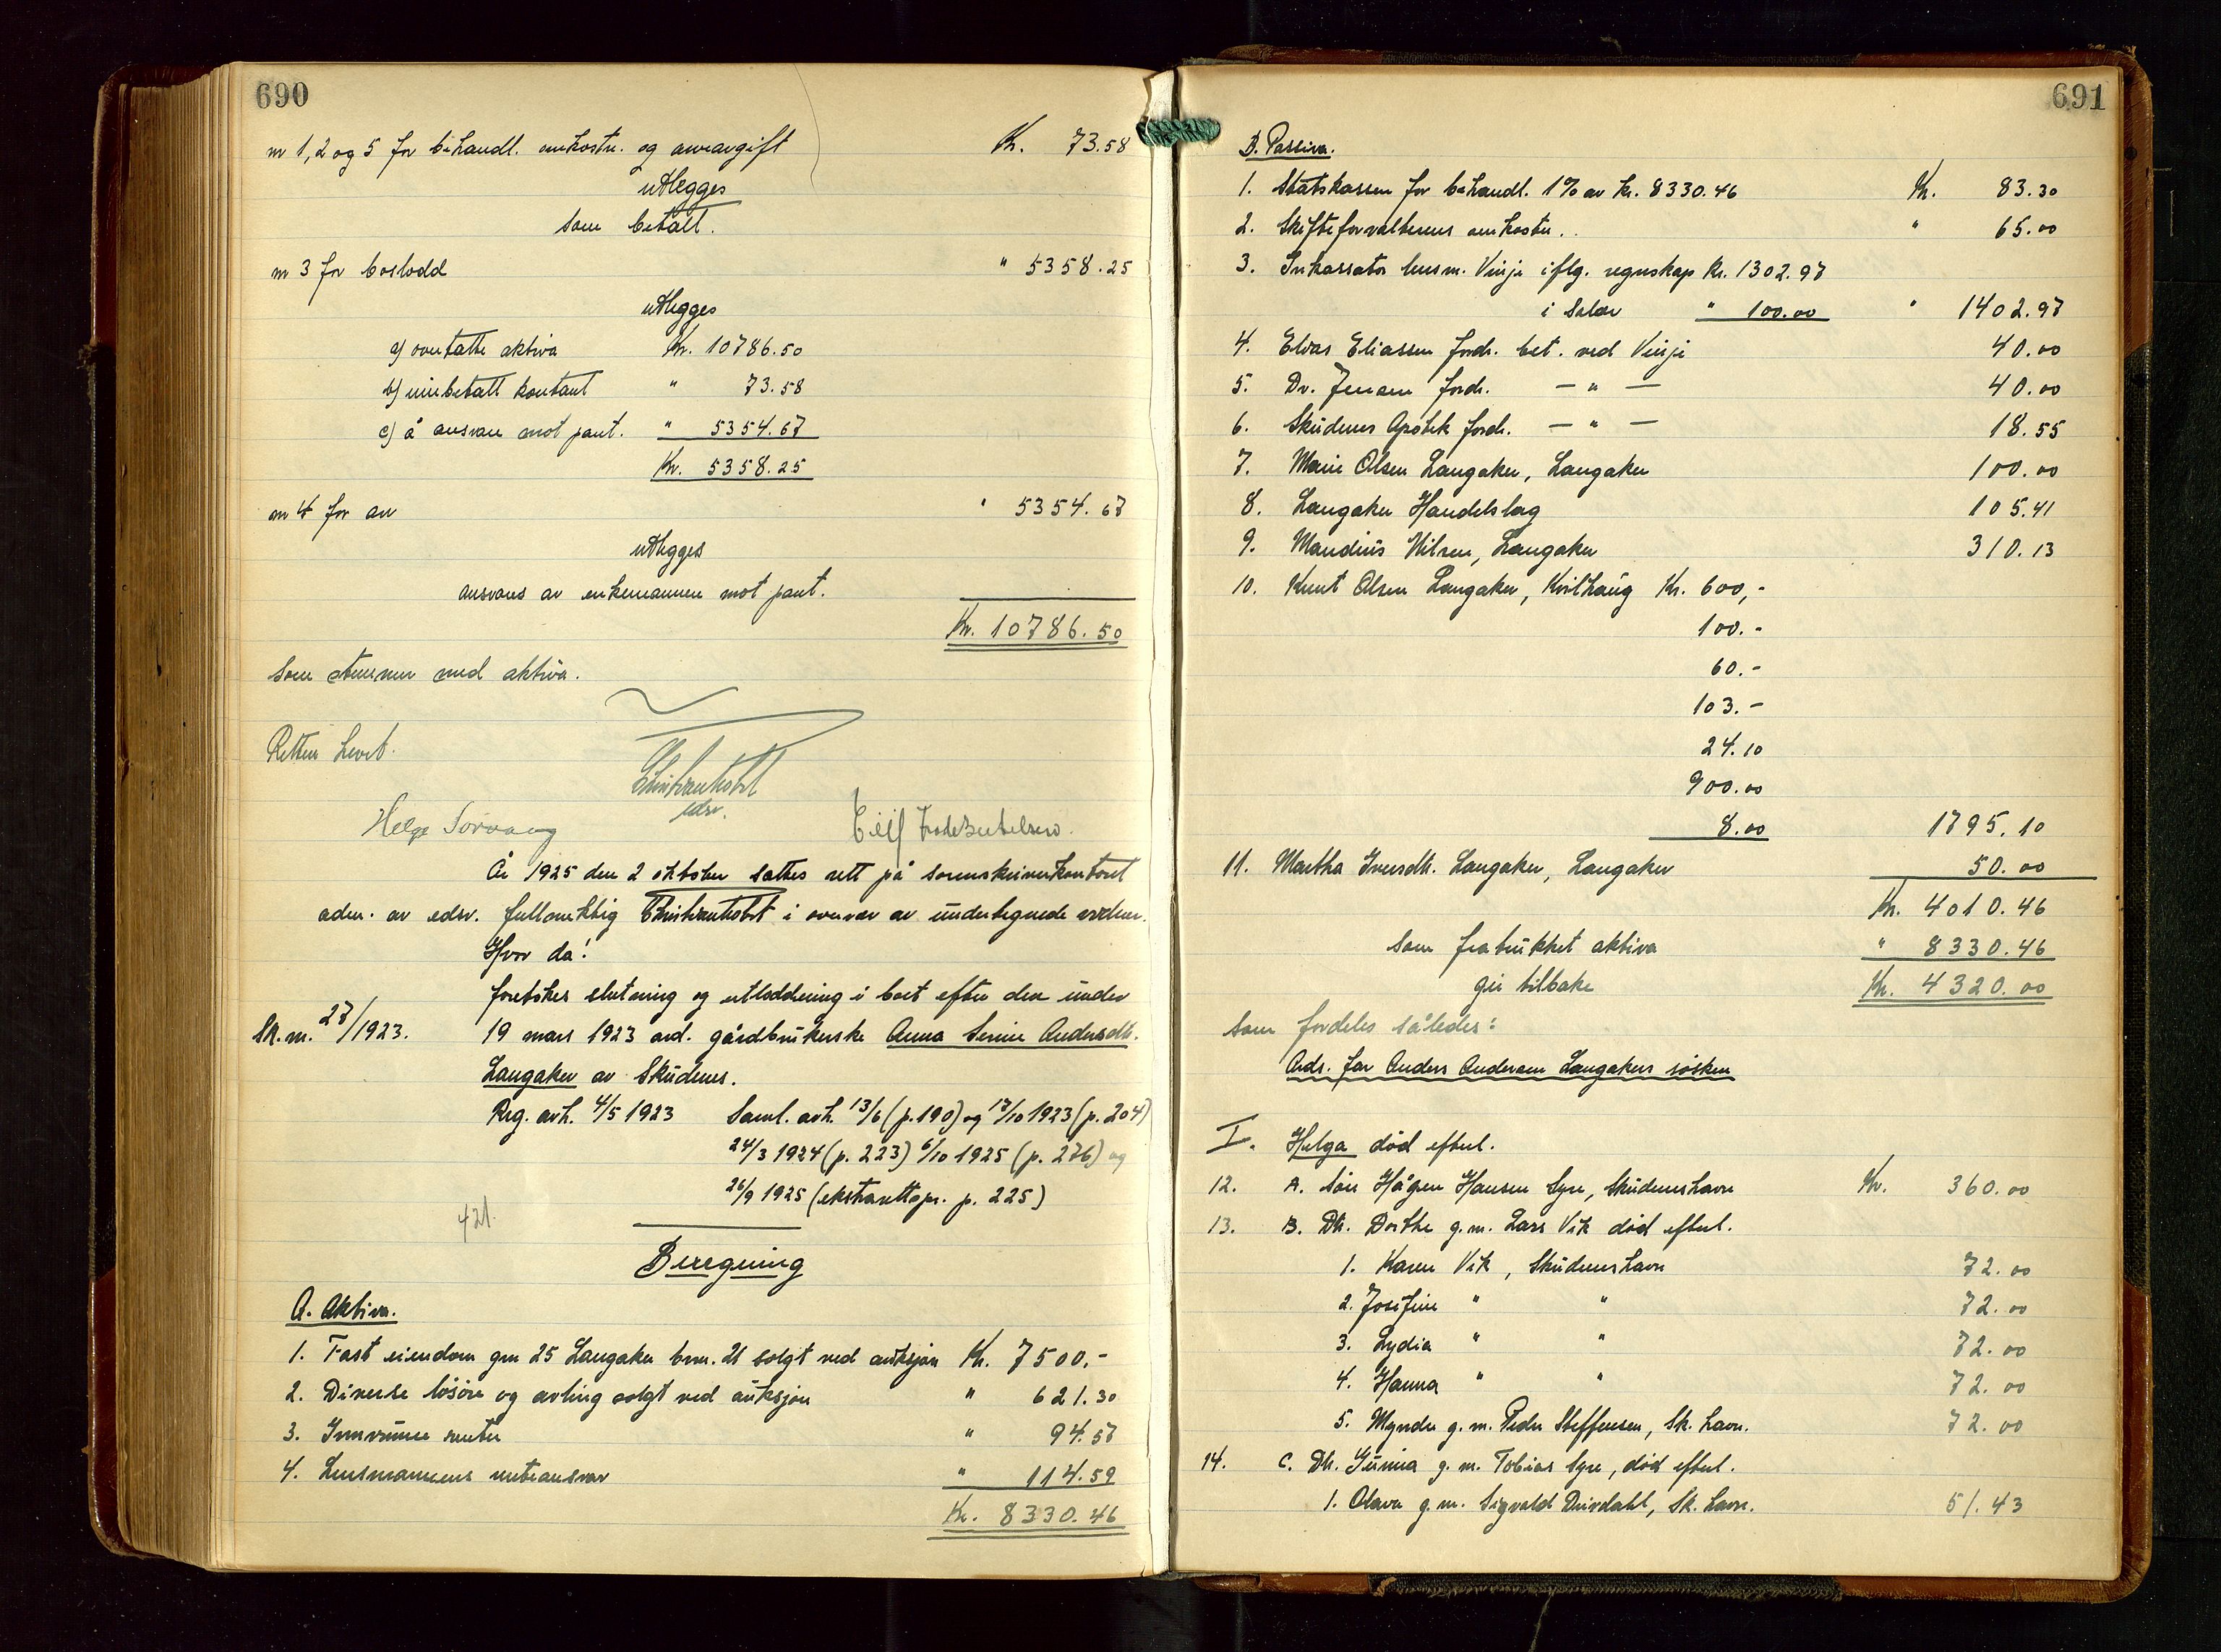 690
nr 1, 2 og 5 for behandl. omkostn. og arveavgift Kr. 73.58
utlegges
som betalt.
nr 3 for boslodd " 5358.25
utlegges
a) overtatte aktiva Kr. 10786.50
b) innbetalt kontant " 73.58
c) å ansvare mot pant. " 5354.67
Kr. 5358.25
nr 4 for arv " 5354.67
utlegges
ansvares av enkemannen mot pant.
Kr. 10786.50
Som stemmer med aktiva.
Retten hevet.
edsv.
Helge Sørvaag
År 1925 den 2 oktober sattes rett på sorenskriverkontoret
adm. av edsv. fullmektig i overvær av undertegnede vidner.
Hvor da!
foretokes slutning og utloddning i boet efter den under
Sk. nr. 27/1923. 19 mars 1923 avd. gårdbrukerske Anna Serine Andersdtr.
Langaker av Skudenes.
Reg. avh. 4/5 1923 Saml. avh. 13/6 (p. 190) og 17/10 1923 (p. 204)
24/3 1924 (p. 223) 6/10 1925 (p. 276) og
26/9 1925 (ekstrarettspr. p. 225)
421.
Beregning
A. Aktiva.
1. Fast eiendom gnr 25 Langaker bnr. 21 solgt ved auksjon Kr. 7500.-
2. Diverse løsøre og avling solgt ved auksjon " 621.30
3. Innvunne renter " 94.57
4. Lensmannens renteansvar " 114.59
Kr. 8330.46
691
B. Passiva.
1. Statskassen for behandl. 1% av kr. 8330.46 Kr. 83.30
2. Skifteforvalterens omkostn. . " 65.00
3. Inkassator lensm. Vinje iflg. regnskap Kr. 1302.97
i Salær " 100.00 " 1402.97
4. Elias Eliassen fordr. bet. ved Vinje 40.00
5. Dr. Jensen fordr. — " — 40.00
6. Skudenes Apotek fordr. — " — 18.55
7. Marie Olsen Langaker, Langaker 100.00
8. Langaker Handelslag 105.41
9. Mandius Nilsen, Langaker 310.13
10. Knut Olsen Langaker, Kvilhaug Kr. 600,-
100.-
60.-
103.-
24.10
900.00
8.00 1795.10
11. Martha Iversdtr. Langaker, Langaker 50.00
Kr. 4010.46
som fratrukket aktiva " 8330.46
gir tilbake Kr. 4320.00
som fordeles således:
Avds. far Anders Andersen Langakers søsken
I. Helga død efterl.
12. A. Søn Hågen Hansen Syre, Skudeneshavn Kr. 360.00
13. B. Dtr. Dorthe g.m. Lars Vik død efterl.
1. Karen Vik, Skudeneshavn 72.00
2. Josefine " " 72.00
3. Lydia " " 72.00
4. Hanna " " 72.00
5. Mynder g.m. Peder Steffensen, Sk. havn. 72.00
14. C. Dtr. Gunnia g.m. Tobias Syre, død efterl.
1. Olava g.m. Sigvald Duvdahl, Sk. havn. 51.43